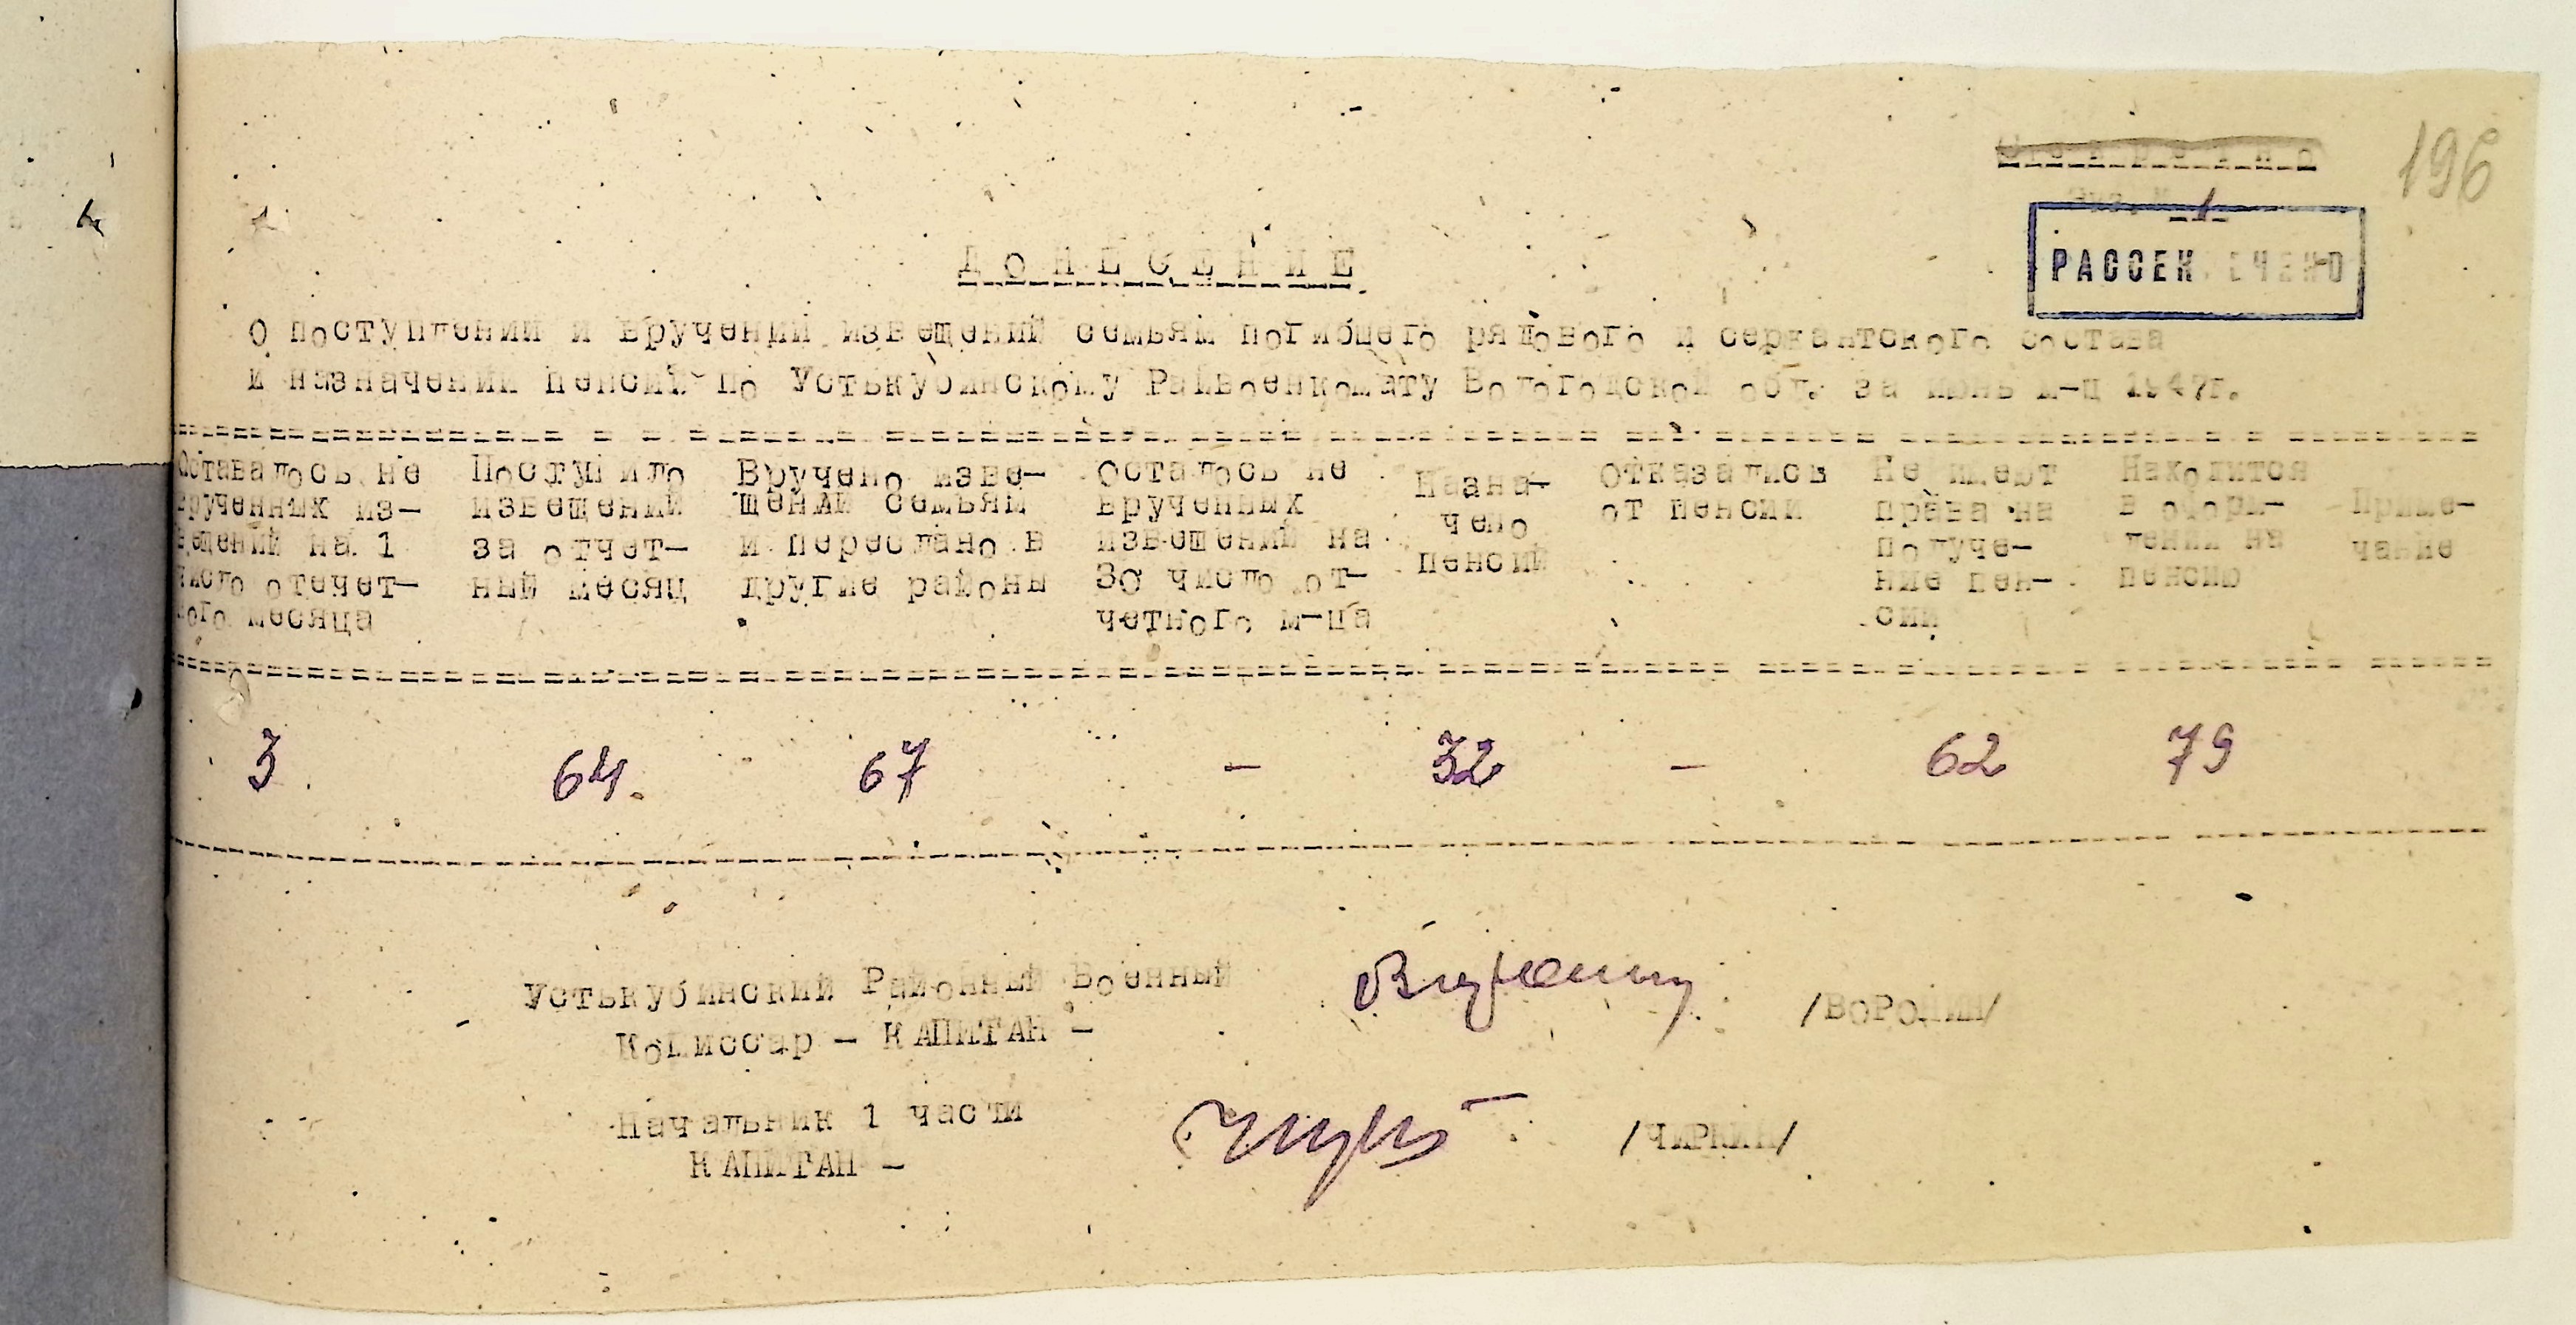 196
Экз. № 1
РАССЕКРЕЧЕНО
ДОНЕСЕНИЕ
О поступлении и вручении извещений семьям погибшего рядового и сержантского состава
и назначении пенсий по Устькубинскому Райвоенкомату Вологодской обл. за июнь м-ц 1947г.
Оставалось не врученных из-вещений на 1 число отечет-ного месяца
Поступило извещений за отчет-ный месяц
Вручено изве-щений семьям и переслано в другие районы
Осталось не врученных извещений на 30 число от-четного м-ца
Назна-чено пенсий
Отказались от пенсии
Не имеют права на получе-ние пен-сии
Находится в оформ-лении на пенсию
Приме-чание
3 64. 67 – 32 – 62 79
Устькубинский Районный Военный
Комиссар – КАПИТАН – /ВОРОНИН/
Начальник 1 части
КАПИТАН – /ЧИРКИН/